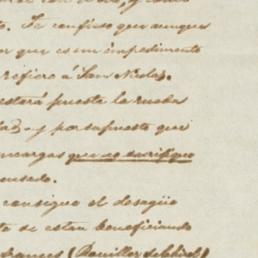 to. Te confieso que aunque
or que es un impedimento
refiero á San Nicolas.
estará puesta la rueda
y por supuesto que
encargas que no sacrifique
ensado.
consigue el desagüe
to de estar beneficiando